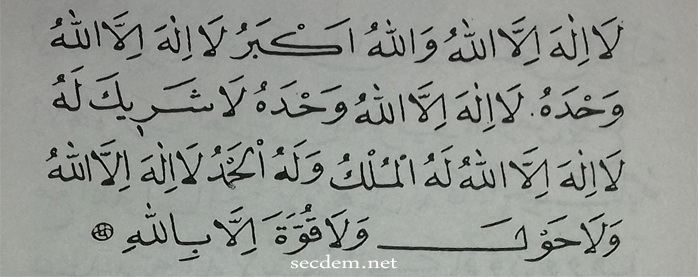 لَا اِلٰهَ اِلَّا اللّٰهُ وَاللّٰهُ اَكْبَرُ لَا اِلٰهَ اِلَّا اللّٰهُ
وَحْدَهُ. لَا اِلٰهَ اِلَّا اللّٰهُ وَحْدَهُ لَا شَرِيكَ لَهُ
لَا اِلٰهَ اِلَّا اللّٰهُ لَهُ الْمُلْكُ وَلَهُ الْحَمْدُ لَا اِلٰهَ اِلَّا اللّٰهُ
وَلَا حَوْلَ وَلَا قُوَّةَ اِلَّا بِاللّٰهِ
secdem.net